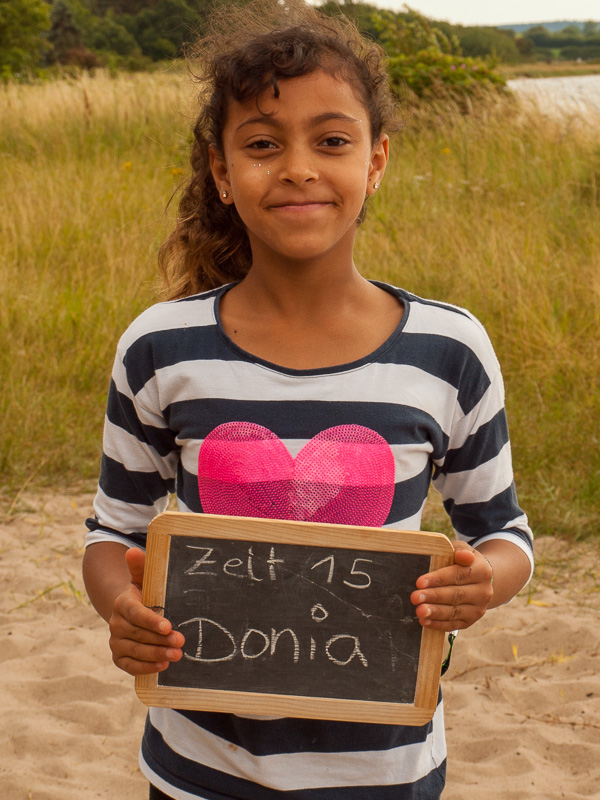 Zeit 15
Donia